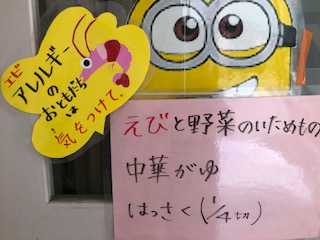 エビ
アレルギー
の
おともだち
は
気をつけて。
えびと野菜のいためもの
中華がゆ
はっさく(1/4切)